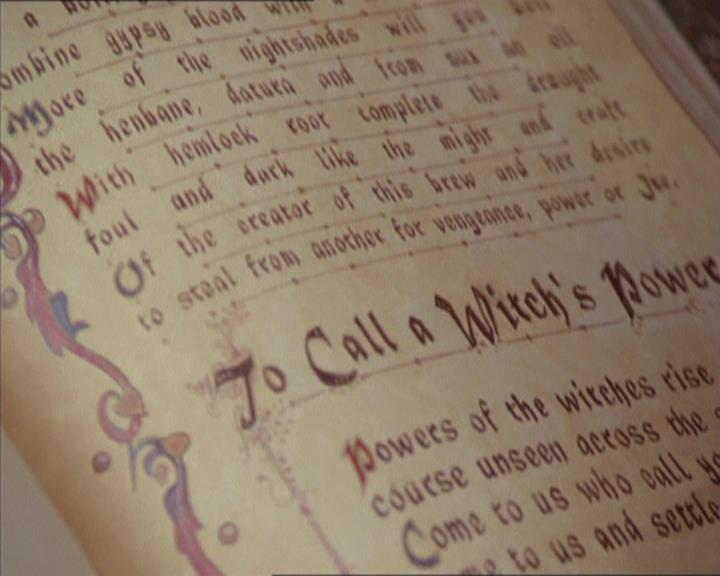 blood with a
ombine gypsy blood with a
More of the nightshades will you
the henbane, datura and from nux an oil
With hemlock root complete the draught
foul and dark like the might and craft
Of the creator of this brew and her desire
to steal from another for vengeance, power or Ire.
To Call a Witch's Power
Powers of the witches rise
course unseen across the
Come to us who call
me to us and settle